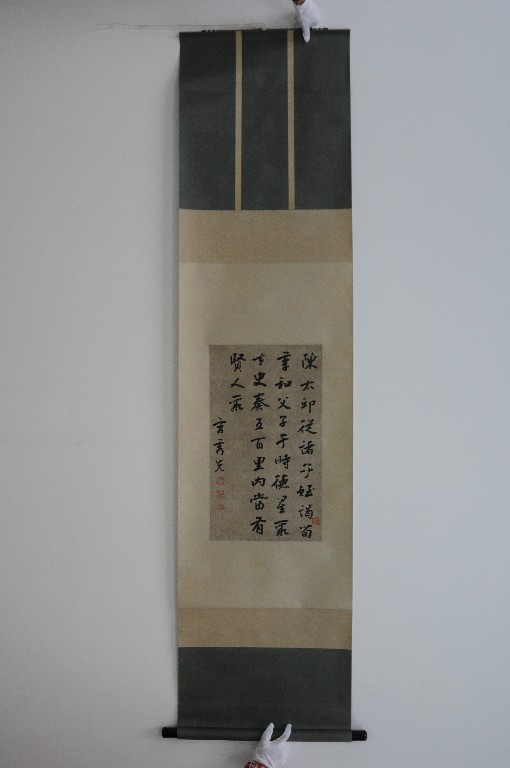 陳太邱從諸子姪詣荀
季和父子于時德星聚
太史奏五百里内當有
賢人聚
曹秀先